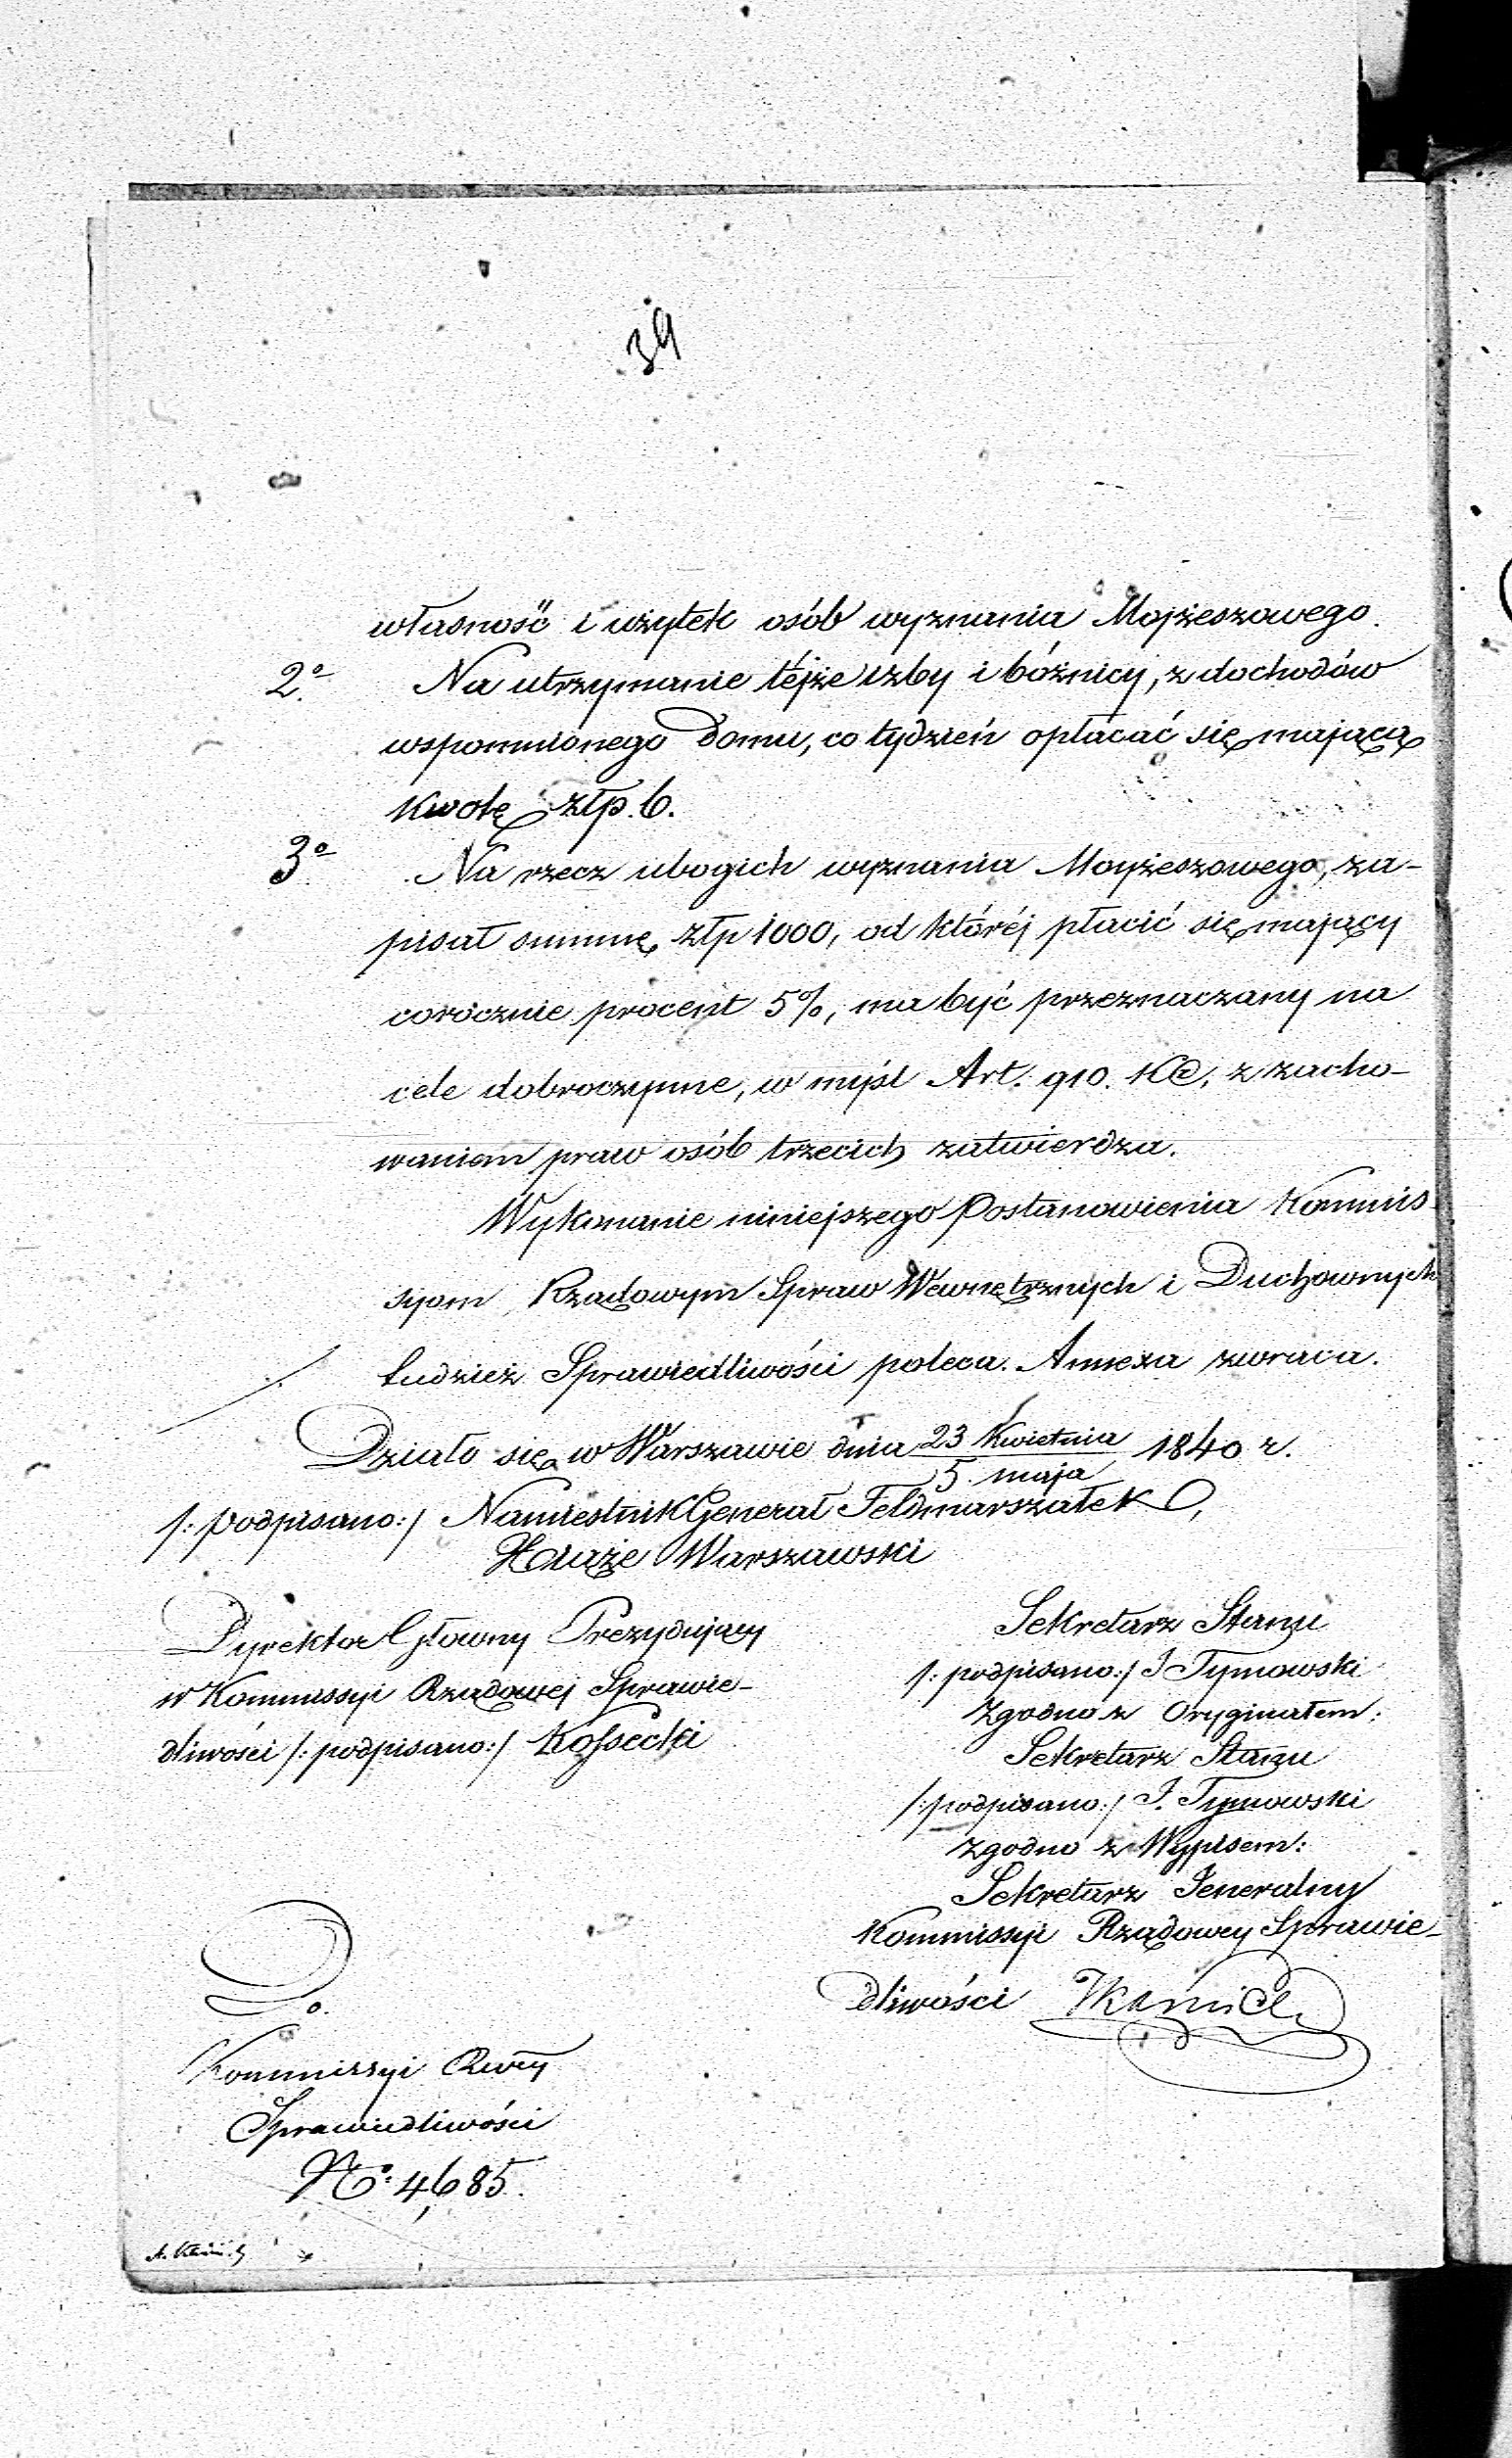 39
własność i użytek osób wyznania Mojżeszowego.
2o. Na utrzymanie téjże izby i bóżnicy, z dochodów
wspomnionego Domu, co tydzień opłacać się mającą
kwotę złp. 6.
3o. Na rzecz ubogich wyznania Moyżeszowego, za-
pisał summę złp 1000, od któréj płacić się mający
corocznie procent 5%, ma być przeznaczany na
cele dobroczynne, w myśl Art. 910. KC, z zacho-
waniem praw osób trzecich zatwierdza.
Wykonanie niniejszego Postanowienia Kommis-
syom Rządowym Spraw Wewnętrznych i Duchownych
tudzież Sprawiedliwości poleca. Annexa zwraca.
Działo się w Warszawie dnia 23 Kwietnia / 5 maja 1840 r.
/: podpisano:/ Namiestnik Generał Feldmarszałek,
Xiąże Warszawski
Dyrektor Główny Prezydujący
w Kommissyi Rządowej Sprawie-
dliwości /: podpisano:/ Kossecki
Sekretarz Stanu
/: podpisano:/ J Tymowski
Zgodno z Oryginałem:
Sekretarz Stanu
/: podpisano:/ J. Tymowski
Zgodno z Wypisem:
Sekretarz Jeneralny
Kommissyi Rządowey Sprawie-
dliwości
Do.
Kommissyi Rwey
Sprawiedliwości
No. 4,685.